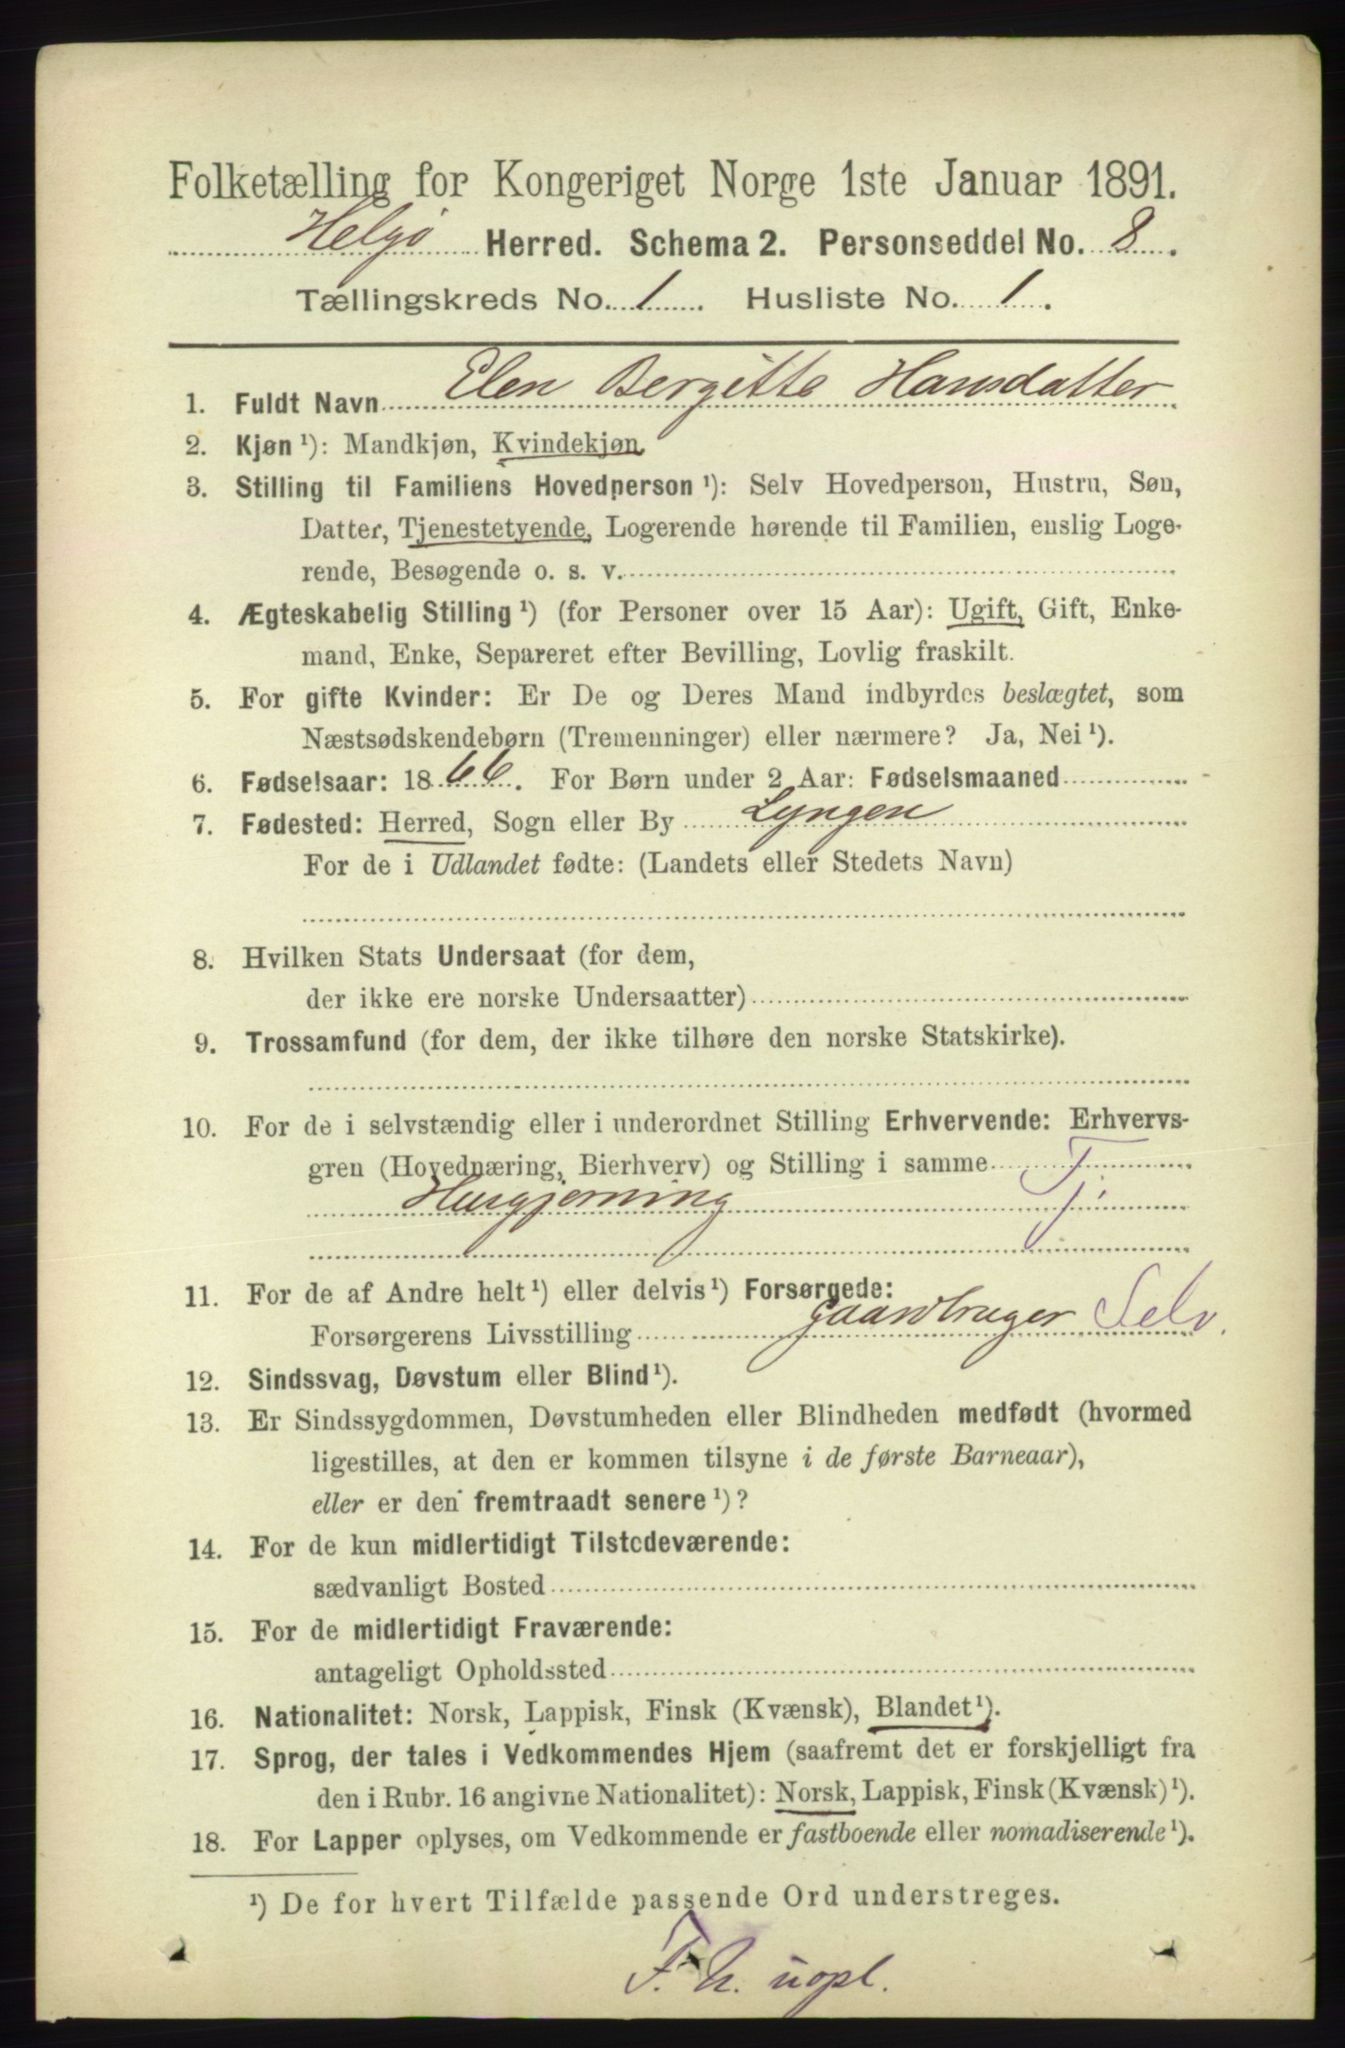 Folketælling for Kongeriget Norge 1ste Januar 1891.
Helgø Herred. Schema 2. Personseddel No. 8.
Tællingskreds No. 1. Husliste No. 1.
1. Fuldt Navn Elen Bergitte Hansdatter
2. Kjøn ¹): Mandkjøn, Kvindekjøn.
3. Stilling til Familiens Hovedperson ¹): Selv Hovedperson, Hustru, Søn,
Datter, Tjenestetyende, Logerende hørende til Familien, enslig Loge-
rende, Besøgende o. s. v.
4. Ægteskabelig Stilling ¹) (for Personer over 15 Aar): Ugift, Gift, Enke-
mand, Enke, Separeret efter Bevilling, Lovlig fraskilt.
5. For gifte Kvinder: Er De og Deres Mand indbyrdes beslægtet, som
Næstsødskendebørn (Tremenninger) eller nærmere? Ja, Nei ¹).
6. Fødselsaar: 1866. For Børn under 2 Aar: Fødselsmaaned
7. Fødested: Herred, Sogn eller By Lyngen
For de i Udlandet fødte: (Landets eller Stedets Navn)
8. Hvilken Stats Undersaat (for dem,
der ikke ere norske Undersaatter)
9. Trossamfund (for dem, der ikke tilhøre den norske Statskirke).
10. For de i selvstændig eller i underordnet Stilling Erhvervende: Erhvervs-
gren (Hovednæring, Bierhverv) og Stilling i samme T.
Husgjerning Tj.
11. For de af Andre helt ¹) eller delvis ¹) Forsørgede:
Forsørgerens Livsstilling gaardbruger Selv.
12. Sindssvag, Døvstum eller Blind ¹).
13. Er Sindssygdommen, Døvstumheden eller Blindheden medfødt (hvormed
ligestilles, at den er kommen tilsyne i de første Barneaar),
eller er den fremtraadt senere ¹)?
14. For de kun midlertidigt Tilstedeværende:
sædvanligt Bosted
15. For de midlertidigt Fraværende:
antageligt Opholdssted
16. Nationalitet: Norsk, Lappisk, Finsk (Kvænsk), Blandet ¹).
17. Sprog, der tales i Vedkommendes Hjem (saafremt det er forskjelligt fra
den i Rubr. 16 angivne Nationalitet): Norsk, Lappisk, Finsk (Kvænsk) ¹).
18. For Lapper oplyses, om Vedkommende er fastboende eller nomadiserende ¹).
¹) De for hvert Tilfælde passende Ord understreges.
F. N. uopl.